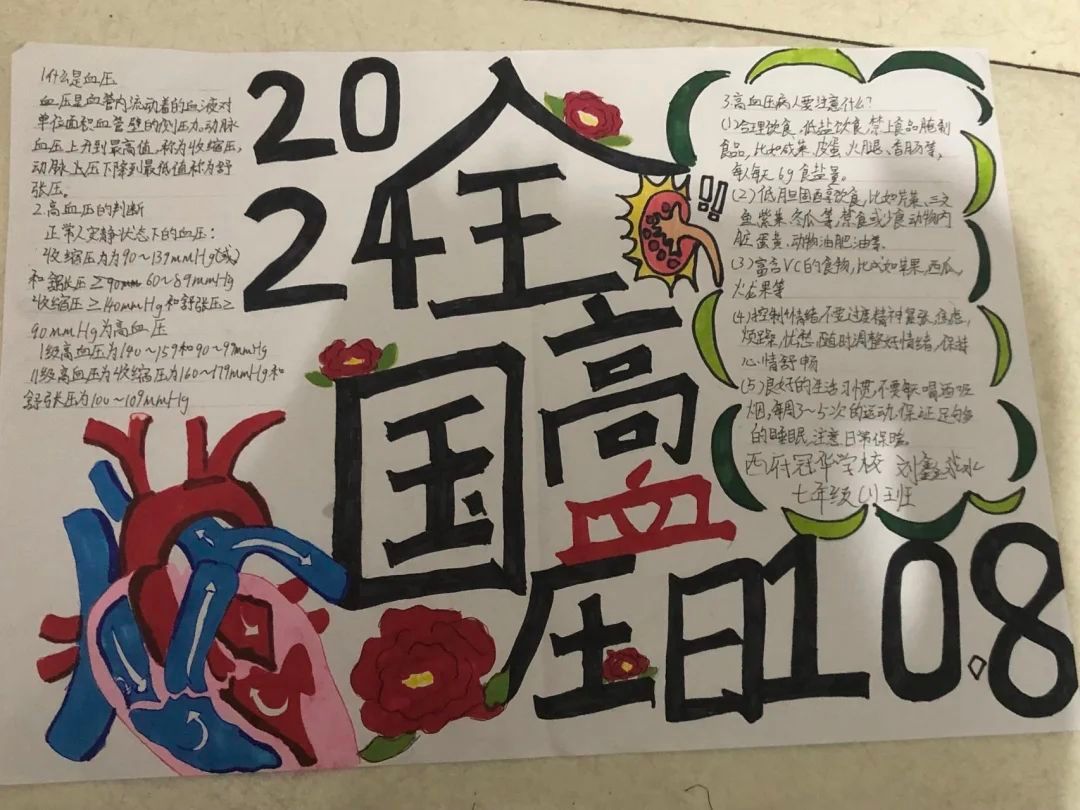 1什么是血压
血压是血管内流动着的血液对
单位面积血管壁的侧压力。动脉
血压上升到最高值,称为收缩压,
动脉上压下降到最低值称为舒
张压。
2.高血压的判断
正常人安静状态下的血压:
收缩压为为90~139mmHg(或)
和舒张压 60~89mmHg
收缩压≥140mmHg和舒张压≥
90mmHg为高血压
1级高血压为140~159和90~99mmHg
11级高血压为收缩压为160~179mmHg和
舒张压为100~109mmHg
2024
全国
高血压日
10.8
!!
3.高血压病人要注意什么?
(1)合理饮食,低盐饮食,禁止食品腌制
食品,比如咸菜、皮蛋、火腿、香肠等,
每人每天6g食盐量。
(2)低胆固醇饮食,比如芹菜、三文
鱼、紫菜、冬瓜等,禁食或少食动物内
脏、蛋黄、动物油肥油等。
(3)富含VC的食物,比如苹果,西瓜,
火龙果等
(4)控制情绪,不要过度精神紧张,焦虑,
烦躁,忧愁,随时调整好情绪,保持
心情舒畅
(5)良好的生活习惯,不要每天喝酒
烟,每周3~5次的运动,保证足够
的睡眠,注意日常保险。
西府冠华学校 刘鑫
七年级(1)班